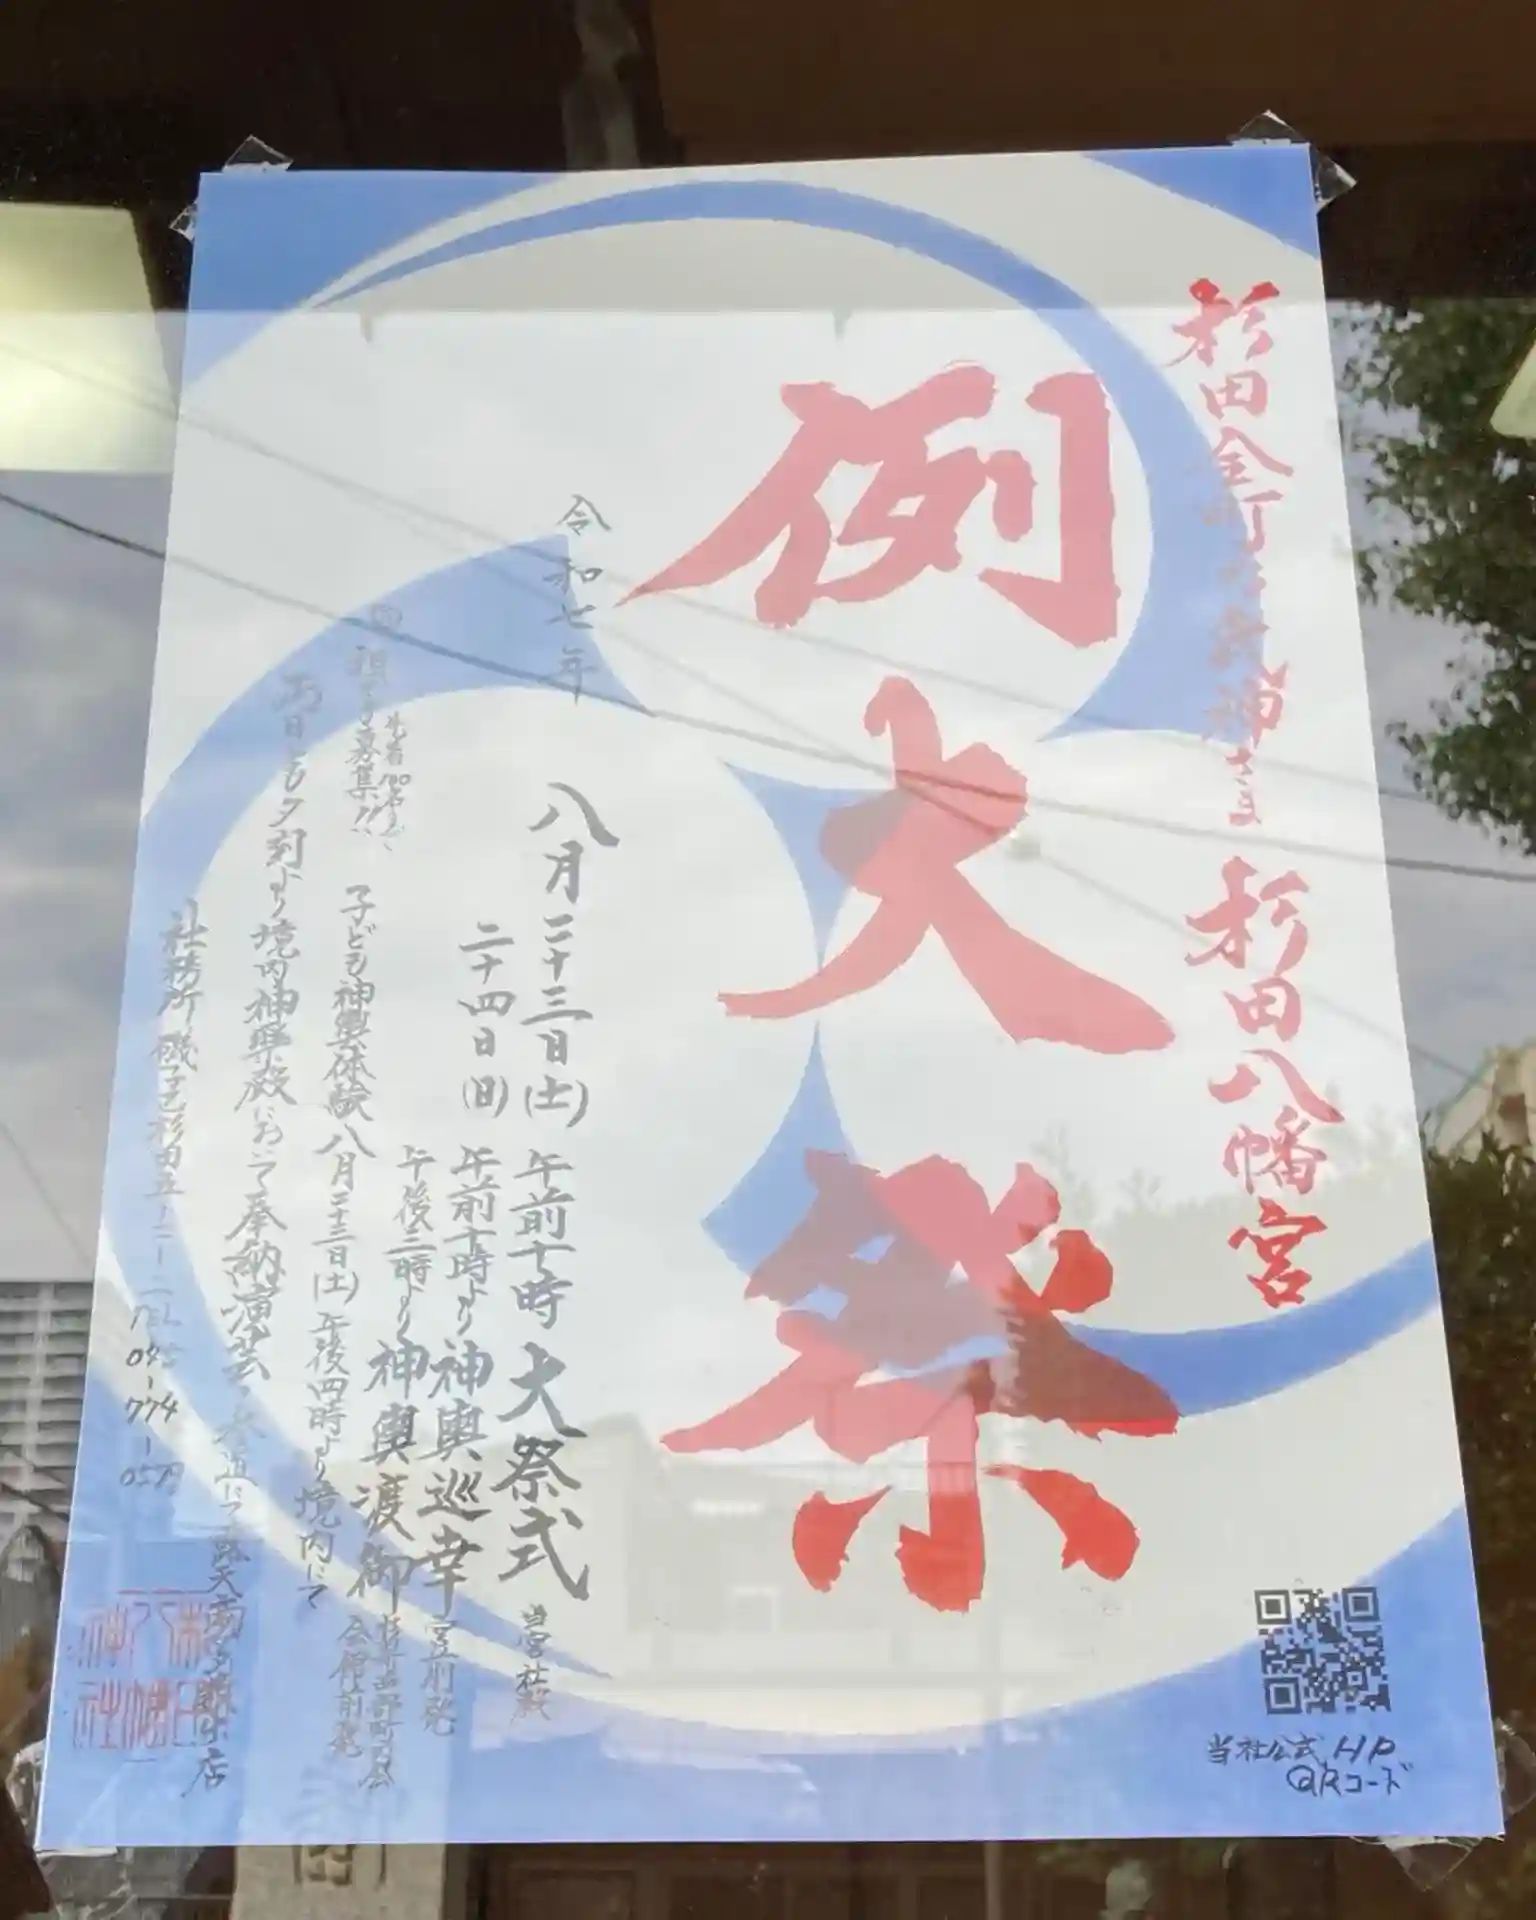 杉田全町 神 杉田八幡宮
例大祭
令和七年
八月二十三日(土) 午前十時 大祭式 当宮社殿
二十四日(日) 午前十時より 神輿巡幸 宮前発
午後三時より 神輿渡御 会館前発
先着100名まで
子ども神輿体験 八月二十三日(土) 午後四時より 境内にて
両日とも夕刻より 境内神楽殿において奉納演芸
社務所 磯子区杉田 TEL 045-774-
当社公式HP
QRコード